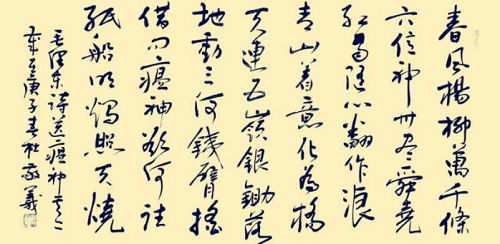 春風楊柳萬千條
六億神州尽舜堯
紅雨隨心翻作浪
青山着意化為橋
天連五嶺銀鋤落
地動三河鐵臂搖
借问瘟神欲何往
紙船明燭照天燒
毛澤東詩送瘟神之二
庚子春杜敬義